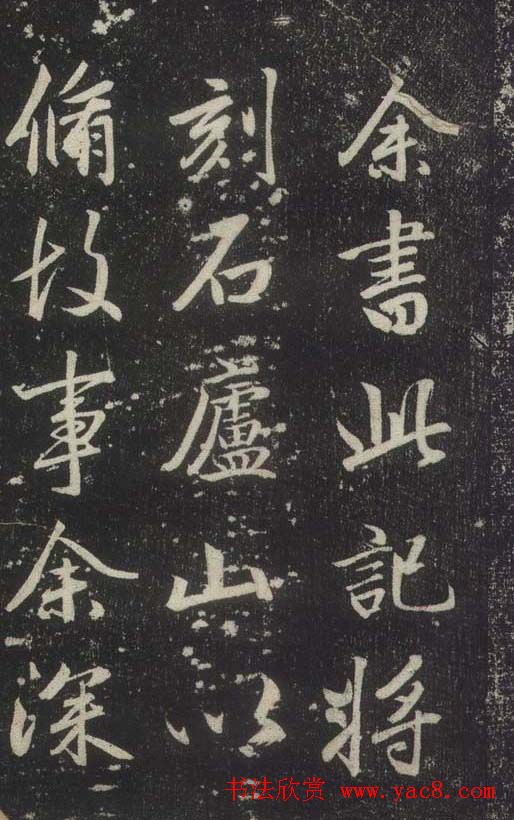 余書此記將
刻石廬山以
脩故事余深
书法欣赏 www.yac8.com